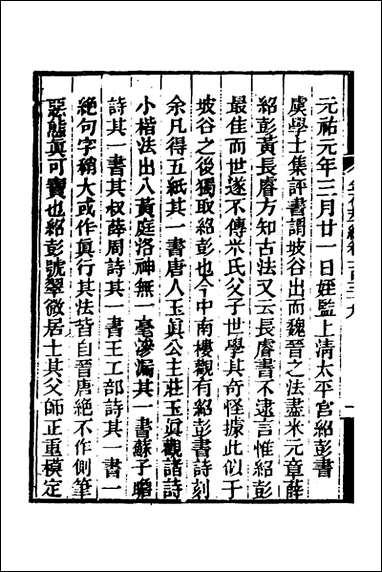 元祐元年三月廿一日姪監上清太平宮紹彭書
虞學士集評書謂坡谷出而魏晉之法盡米元章薛
紹彭黃長睿方知古法又云長睿書不逮言惟紹彭
最佳而世遂不傳米氏父子世學其奇怪據此似于
坡谷之後獨取紹彭也今中南樓觀有紹彭書詩刻
余凡得五紙其一書唐人玉眞公主莊玉眞觀諸詩
小楷法出入黃庭洛神無一毫滲漏其一書蘇子瞻
詩其一書其叔薛周詩其一書王工部詩其一書一
絕句字稍大或作眞行其法皆自晉唐絕不作側筆
惡態眞可寶也紹彭號翠微居士其父師正重模定
金石萃編卷一百三九
一